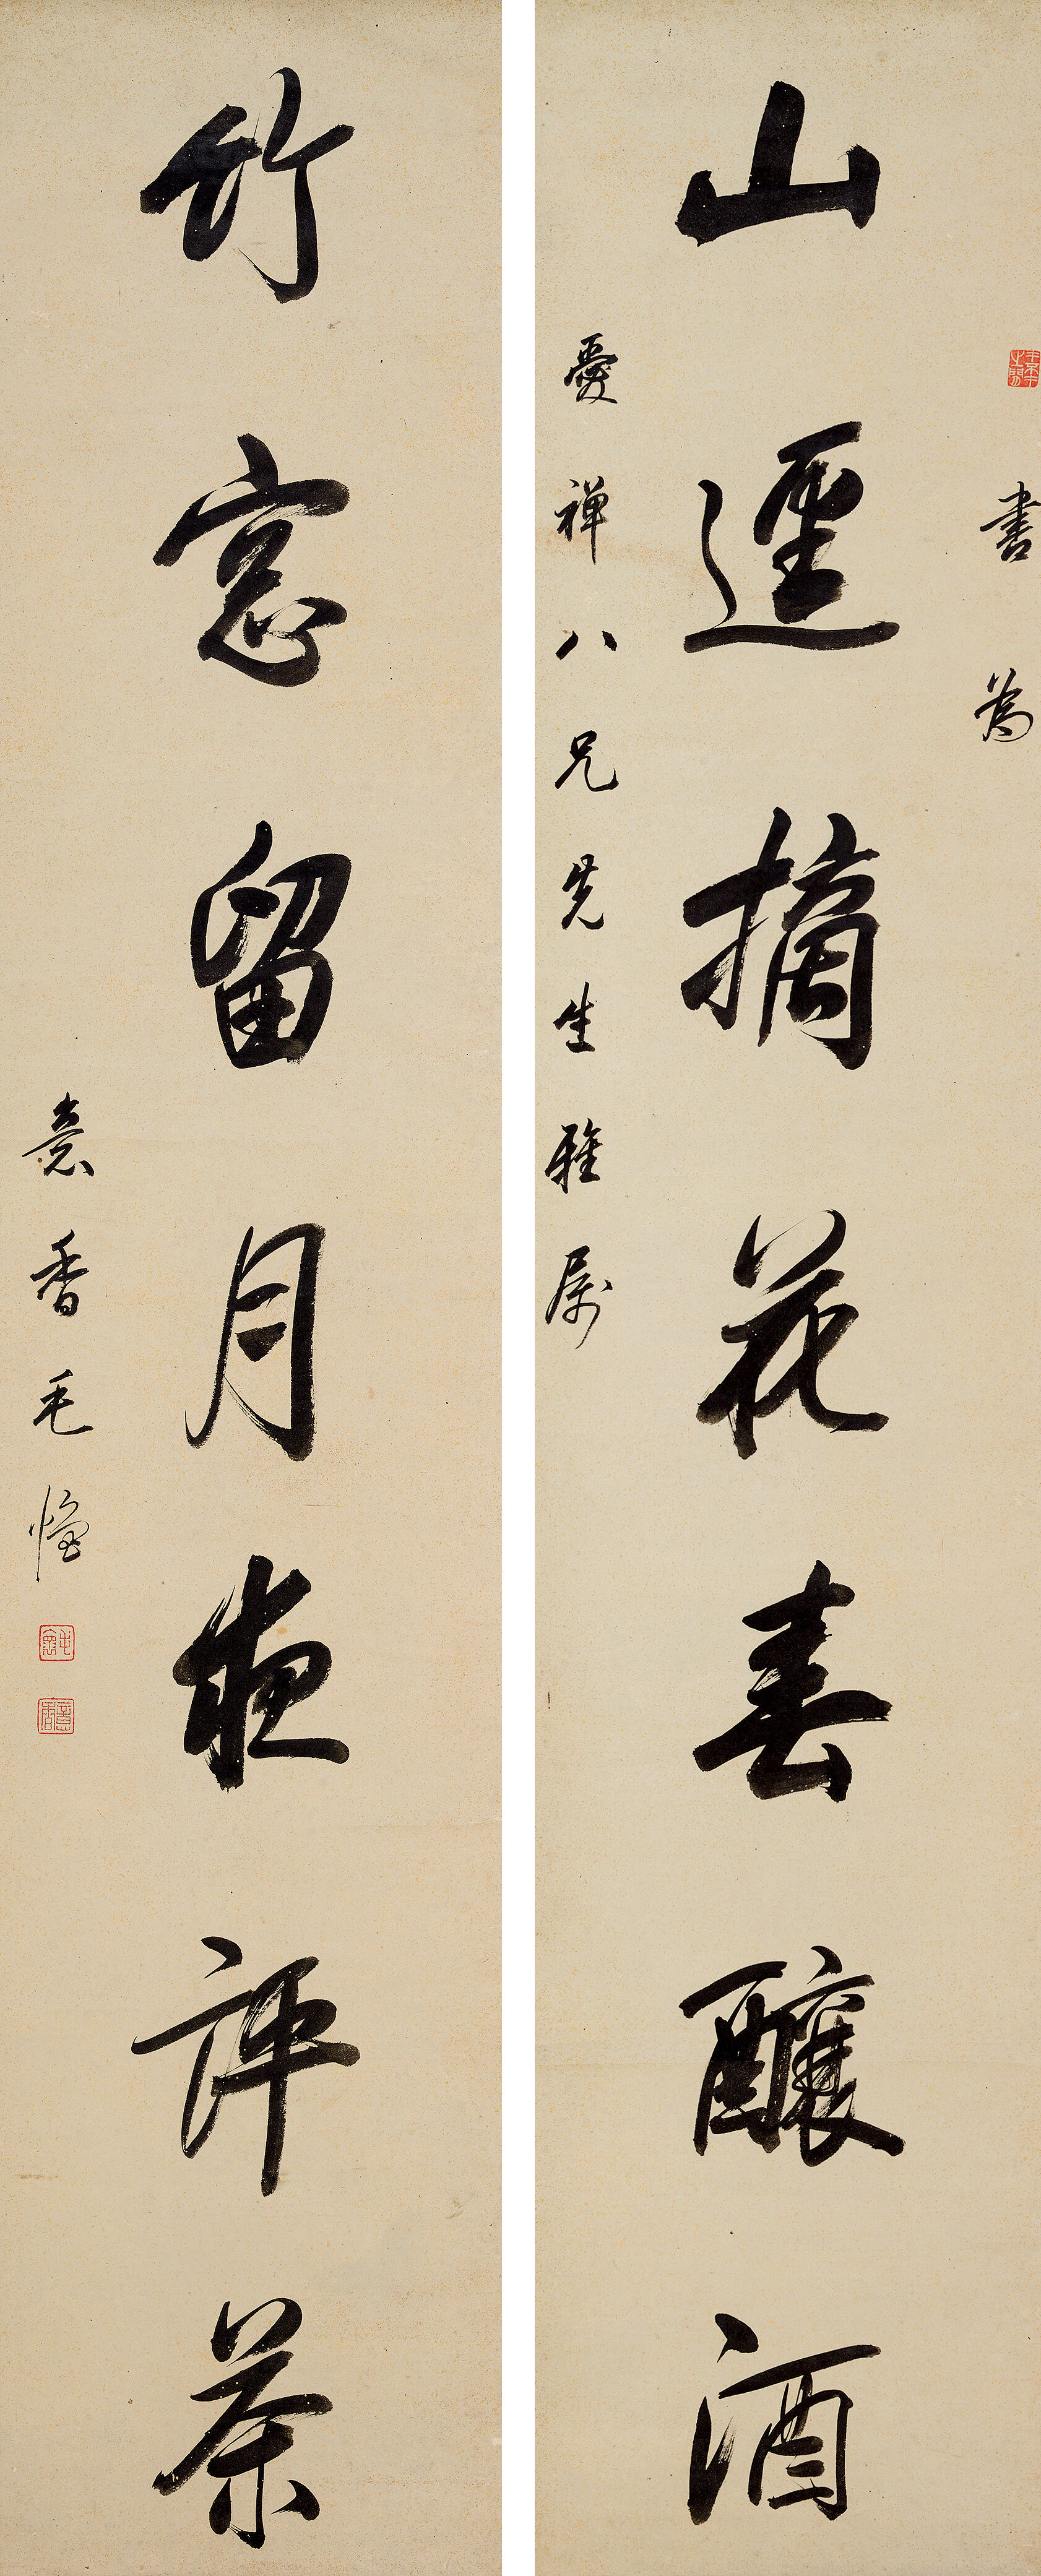 書為
山逕摘花春釀酒
憂禪八兄先生雅屬
竹窓留月夜評茶
意香毛